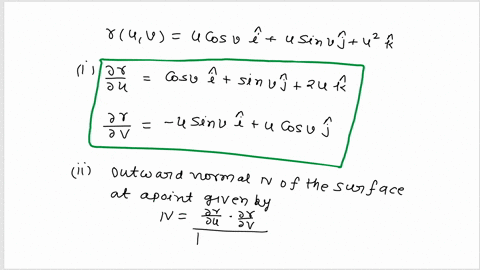 r(u,v) = u cosv î + u sinv ĵ + u² k̂
(i) ∂r/∂u = cosv î + sinv ĵ + 2u k̂
∂r/∂v = -u sinv î + u cosv ĵ
(ii) outward normal N of the surface
at apoint given by
N = ∂r/∂u · ∂r/∂v
|